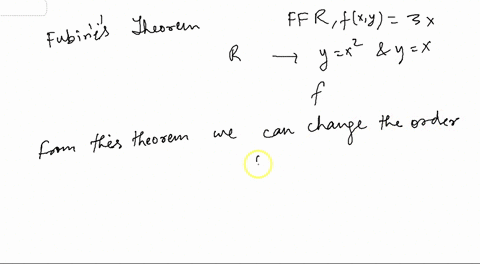 Fubini's Theorem FF R, f(x,y) = 3x
R → y = x² & y = x
f
from this theorem we can change the order